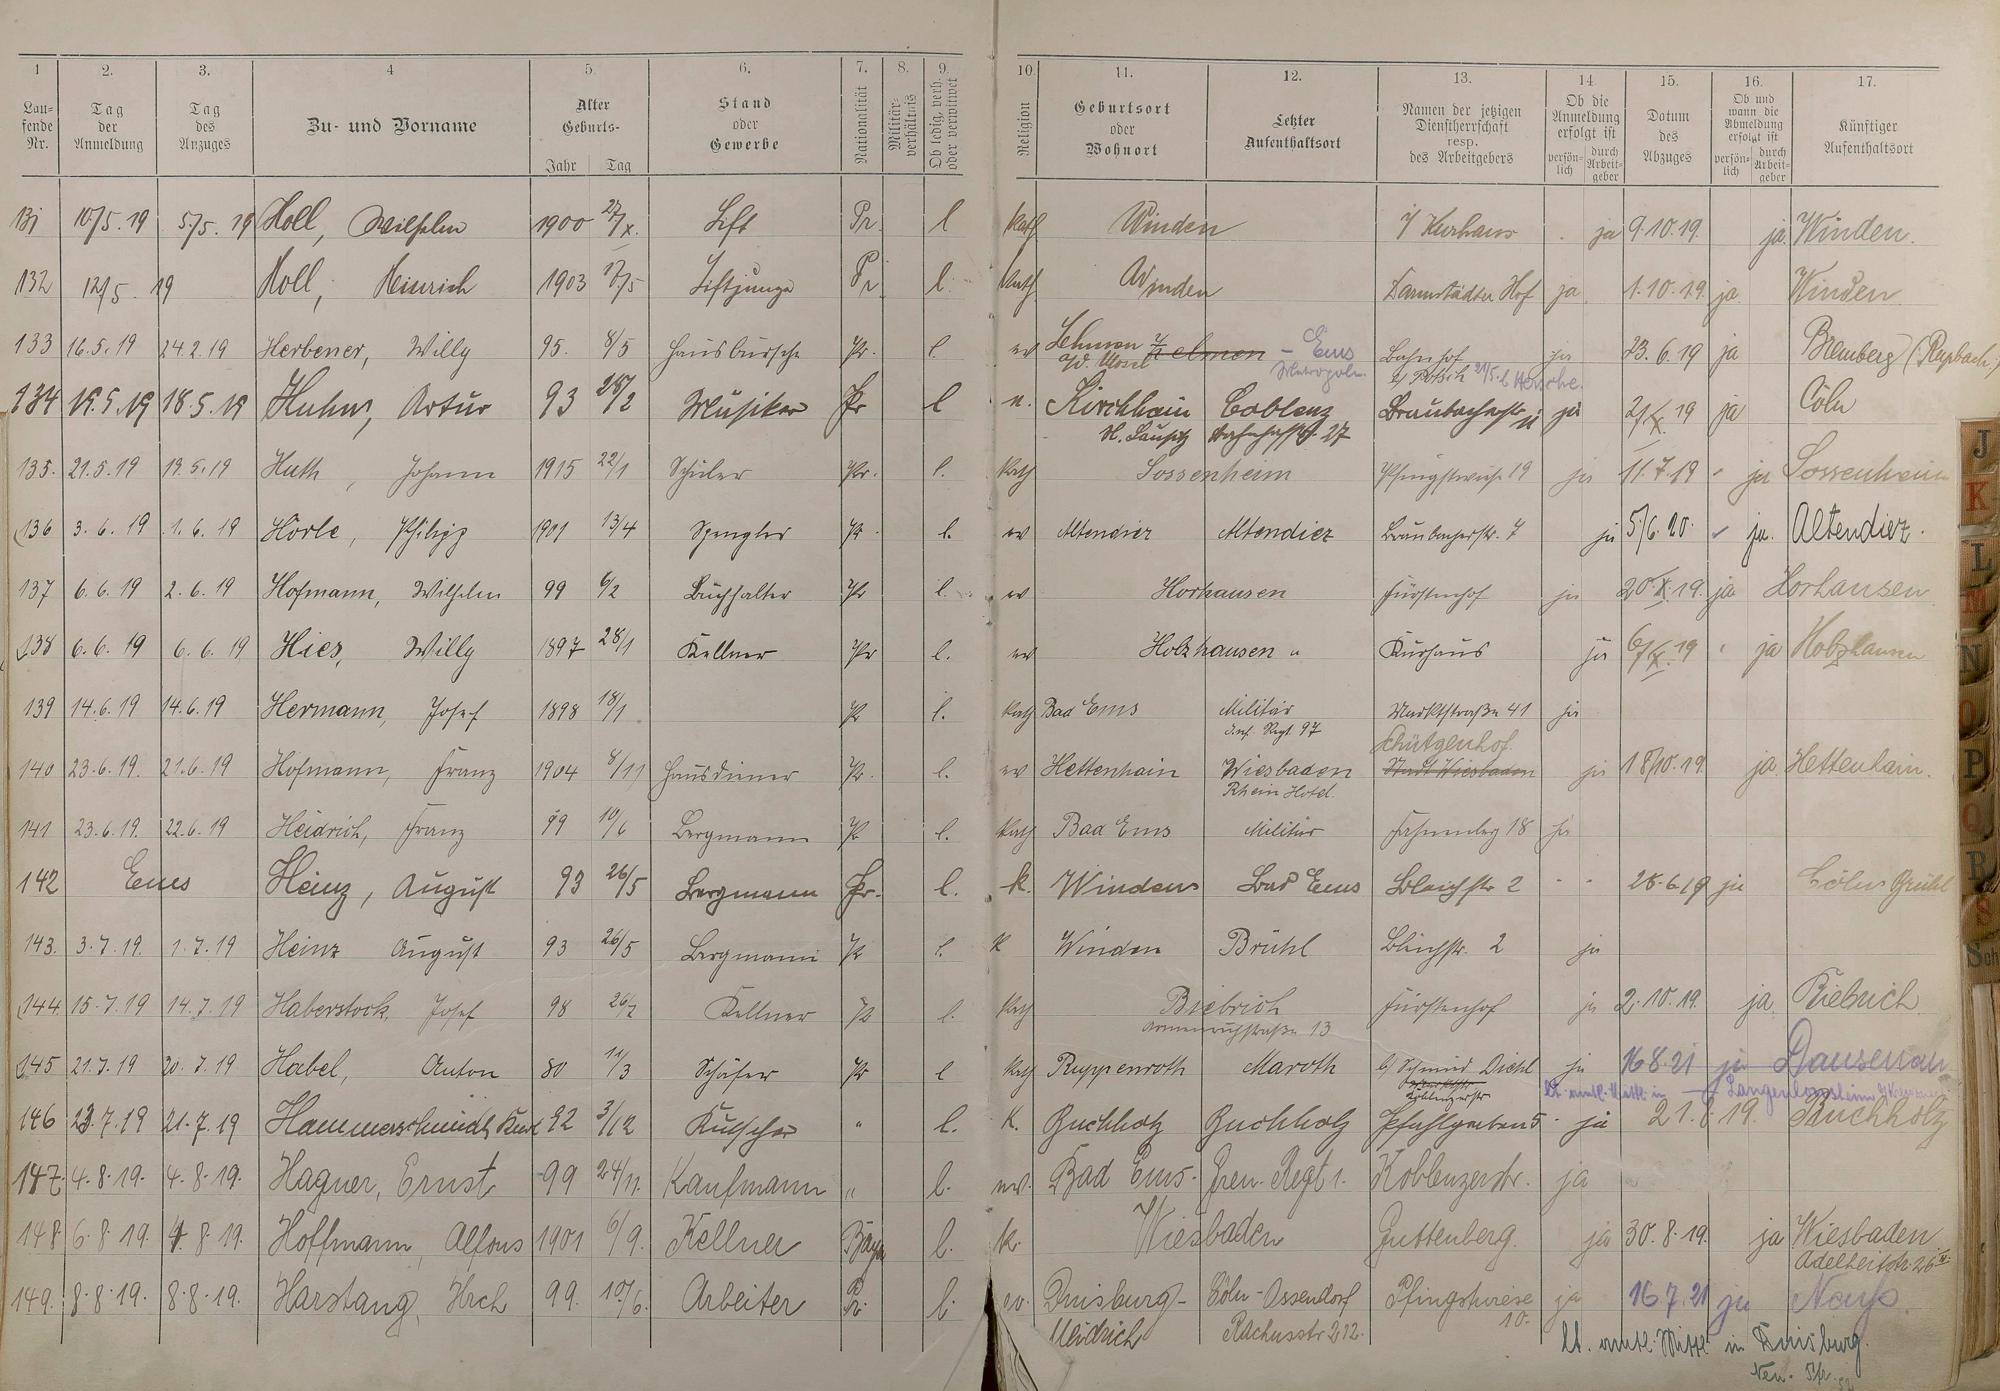 1 2. 3. 4 5. 6. 7. 8. 9. 10. 11. 12. 13. 14. 15. 16. 17.
Lau-
fende
Nr.
Tag
der
Anmeldung
Tag
des
Anzuges
Zu- und Vorname
Alter
Geburts-
Jahr Tag
Stand
oder
Gewerbe
Nationalität
Militär-
verhältnis
Ob ledig, verh.
oder verwitwet
Religion
Geburtsort
oder
Wohnort
Letzter
Aufenthaltsort
Namen der jetzigen
Dienstherrschaft
resp.
des Arbeitgebers
Ob die
Anmeldung
erfolgt ist
persön-
lich
durch
Arbeit-
geber
Datum
des
Abzuges
Ob und
wann die
Abmeldung
erfolgt ist
persön-
lich
durch
Arbeit-
geber
Künftiger
Aufenthaltsort
131 10/5. 19 5/5. 19 Holl, Wilhelm 1900 27/X. Lift Pr. l Kath Winden i/ Kurhaus ja 9.10.19. ja. Winden.
132 12/5. 19 Holl, Heinrich 1903 Liftjunge Pr l. Kath Winden Darmstädter Hof ja 1.10.19. ja Winden
133 16.5.19 24.2.19 Herbener, Willy 95. 8/5 Hausbursche Pr. l. ev Lehmen – Ems Bahnhof ja 23.6.19 ja Bremberg
a/d. Mosel Metropole
134 19.5.19 18.5.19 Huhn, Artur 93 28/2 Musiker Pr l Kirchhain Coblenz Braubacherstr ja 2/X. 19 ja Cöln
N. Lausitz Bahnhofstr. 27
135. 21.5.19 19.5.19 Huth, Johann 1915 22/1 Schüler Pr. l. Kath Sossenheim Pfingstwiese 19 ja 11.7.19 ja Sossenheim
136 3.6.19 1.6.19 Hörle, Philipp 1901 13/4 Spengler Pr. l. ev Altendiez Altendiez Braubacherstr. 7 ja 5/6.20 ja. Altendiez.
137 6.6.19 2.6.19 Hofmann, Wilhelm 99 6/2 Buchhalter Pr l. ev Horhausen Fürstenhof ja 20.X.19. ja Horhausen
138 6.6.19 6.6.19 Hies, Willy 1897 28/1 Kellner Pr l. ev Holzhausen " Kurhaus ja 6/X.19 ja Holzhausen
139 14.6.19 14.6.19 Hermann, Josef 1898 18/1 Pr l. Kath Bad Ems Militär Marktstraße 41 ja
Inf. Regt. 97
Schützenhof.
140 23.6.19. 21.6.19 Hofmann, Franz 1904 8/11 Hausdiener Pr. l. ev Hettenhain Wiesbaden Stadt Wiesbaden ja 18/10.19. ja Hettenhain.
Rhein Hotel.
141 23.6.19. 22.6.19 Heidrich, Franz 99 10/6 Bergmann Pr l. Kath Bad Ems Militär 18 ja
142 Ems Heinz, August 93 26/5 Bergmann Pr. l. k. Winden Bad Ems Bleichstr 2 28.6.19 ja Cöln Brühl
143. 3.7.19. 1.7.19 Heinz August 93 26/5 Bergmann Pr l. K Winden Brühl Bleichstr. 2 ja
144. 15.7.19 14.7.19 Haberstock, Josef 98 26/7 Kellner Pr l. Kath Biebrich Fürstenhof ja 2.10.19. ja. Biebrich
Armenruhstraße 13
145 21.7.19 20.7.19 Habel, Anton 80 11/3 Schäfer Pr l Kath Ruppenroth Maroth b/ Schmid Diehl ja 16.8.21 ja Dausenau
lt. amtl. Mittl. in Langenlonsheim
Coblenzerstr
146 23.7.19 21.7.19 Hammerschmidt, Kurt 92 3/12 Kutscher " l. K. Buchholz Buchholz Pfahlgraben 5 ja 21.8.19. Buchholz
147. 4.8.19. 4.8.19. Hagner, Ernst 99 24/11. Kaufmann " l. ev. Bad Ems - Gren. Regt 1. Koblenzerstr. ja
148 6.8.19. 4.8.19. Hoffmann, Alfons 1901 6/9. Kellner Bayr l. K. Wiesbaden Guttenberg. ja 30.8.19. ja Wiesbaden
Adelheidstr. 26
149. 8.8.19. 8.8.19. Harstang, Hrch 99. 10/6. Arbeiter Pr. l. ev. Duisburg- Cöln-Ossendorf Pfingstwiese ja 16.7.21 ja
Meidrich Rochusstr 212. 10.
lt. amtl. Mittl. in Duisburg.
J
K
L
M
N
O
P
Q
R
S
Sch